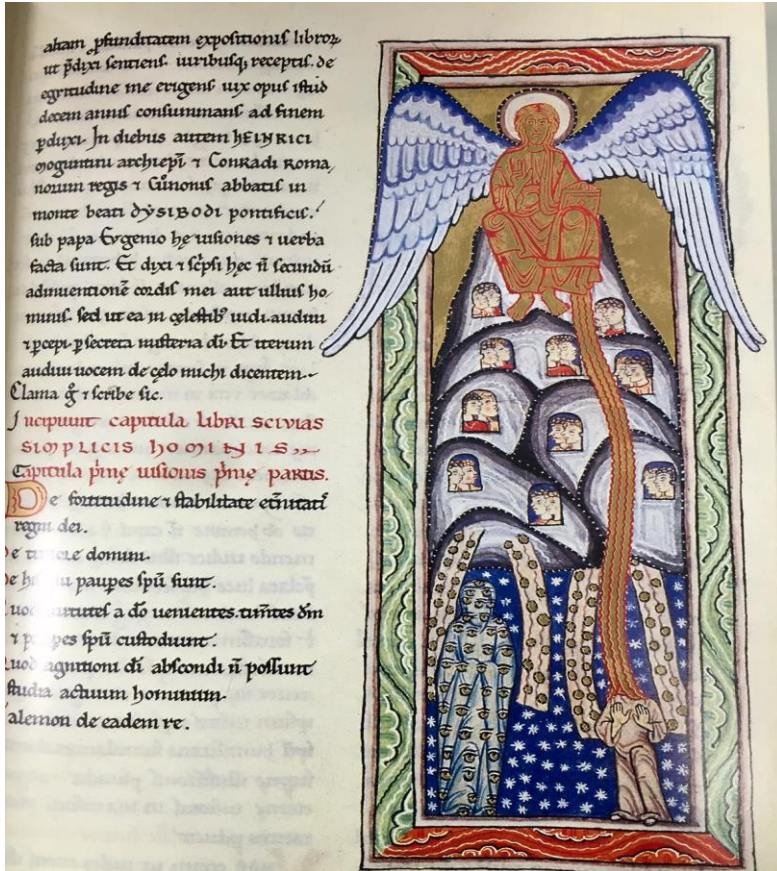 altam ꝓfunditatem expositionis libroꝝ
ut p̄dixi sentiens. uiribusq; receptis. de
egritudine me erigens uix opus istud
decem annis consummans ad finem
ꝑduxi. In diebus autem hEINRICI
moguntini archiepi̅ ⁊ Conradi roma
norum regis ⁊ Cůnonis abbatis in
monte beati dẏSIBODI pontificis.
sub papa Evgenio hę uisiones ⁊ uerba
facta sunt. Et dixi ⁊ sc̅psi hęc n̅ secundu̅
adinuentione̅ cordis mei aut ullius ho
minis. sed ut ea in cęlestib᾿ uidi. audiui
⁊ ꝑcepi. ꝑ secreta misteria di̅. Et iterum
audiui uocem de cęlo michi dicentem.
Clama g̊ ⁊ scribe sic.
Incipiunt capitula libri scivias
SIMPLICIS hOMINIS.
Capitula p̍mę uisionis p̍mę partis.
De fortitudine ⁊ stabilitate et̅nitati̅
regni dei.
e timore domini.
e hi̅s paupes spu̅ sunt.
uod uirtutes a do̅ uenientes. tim̅tes dm̅
⁊ paupes spu̅ custodiunt.
uod agnitioni di̅ abscondi n̅ possunt
studia actuum hominum.
alemon de eadem re.